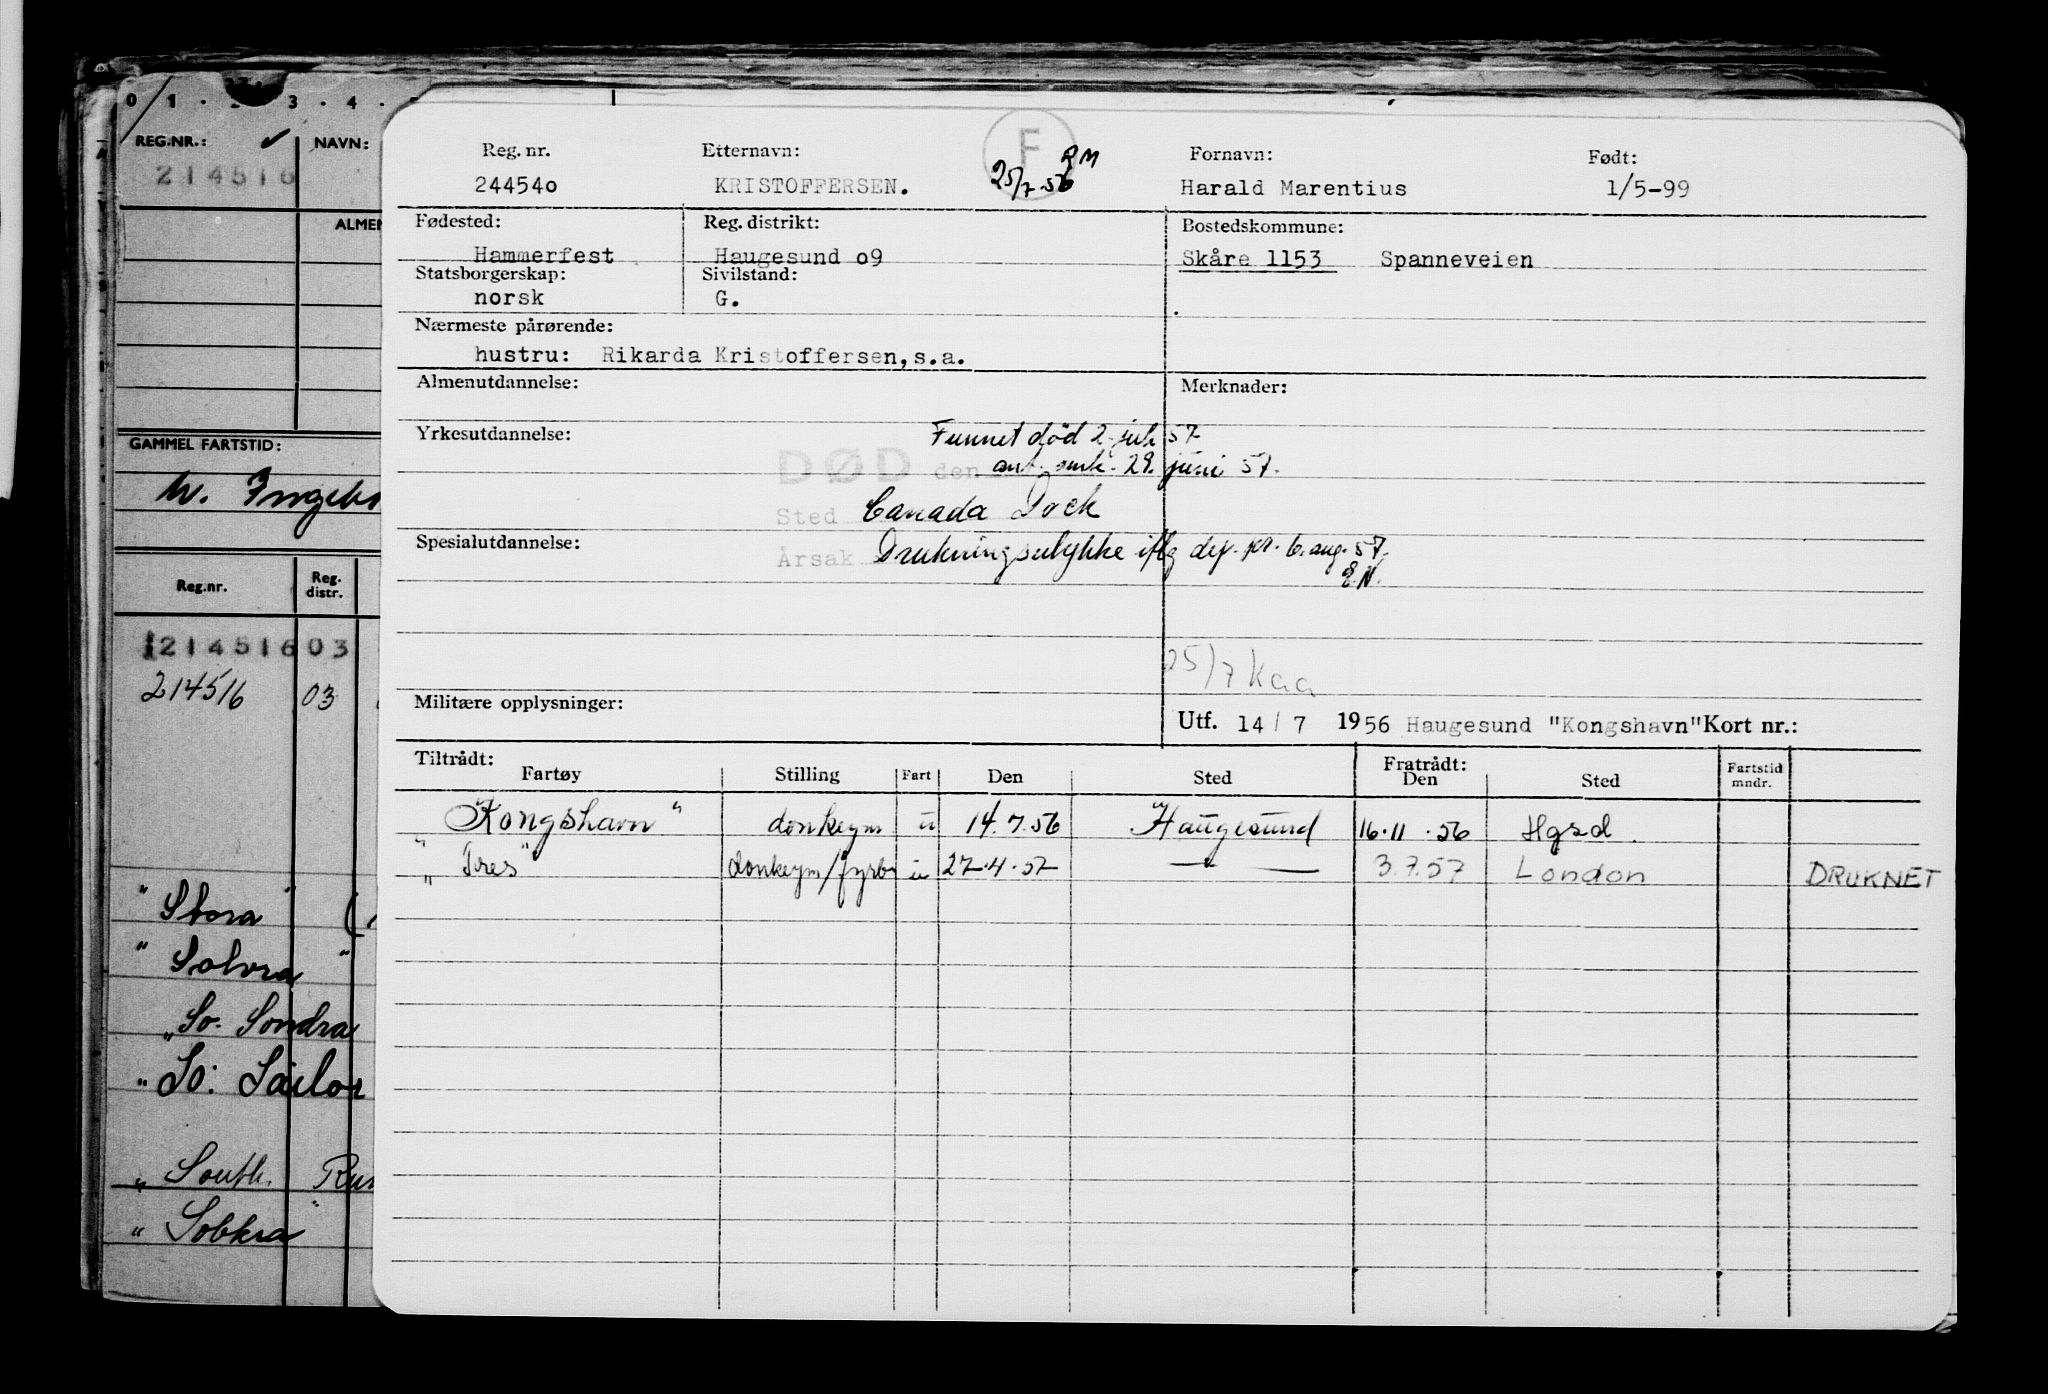 0 1 . 2 3 . 4 .
REG.NR.: ✓ NAVN:
214516
ALMEN
GAMMEL FARTSTID:
Reg.nr. Reg. distr.
21451603
214516 03
" Stora " (
" Solvra "
" So. Sondra
" So: Sailor
" South.
" Sobkra "
F
25/7-56
Reg. nr. Etternavn: Fornavn: Født:
244540 KRISTOFFERSEN. Harald Marentius 1/5-99
Fødested: Reg. distrikt: Bostedskommune:
Hammerfest Haugesund 09 Skåre 1153 Spanneveien
Statsborgerskap: Sivilstand:
norsk G.
Nærmeste pårørende:
hustru: Rikarda Kristoffersen, s.a.
Almenutdannelse: Merknader:
Yrkesutdannelse: Funnet død 2. juli 57.
DØD den ant. omk. 29. juni 57.
Sted Canada Dock
Spesialutdannelse: Årsak Drukningsulykke iflg def. pr. 6. aug. 57.
E.N.
25/7 Kaa
Militære opplysninger: Utf. 14/7 1956 Haugesund "Kongshavn" Kort nr.:
Tiltrådt: Fratrådt:
Fartøy Stilling Fart Den Sted Den Sted Fartstid mndr.
" Kongshavn " donkeym u 14.7.56 Haugesund 16.11.56 Hgsd.
" Tres " donkeym/fyrb u 27.4.57 — — 3.7.57 London DRUKNET